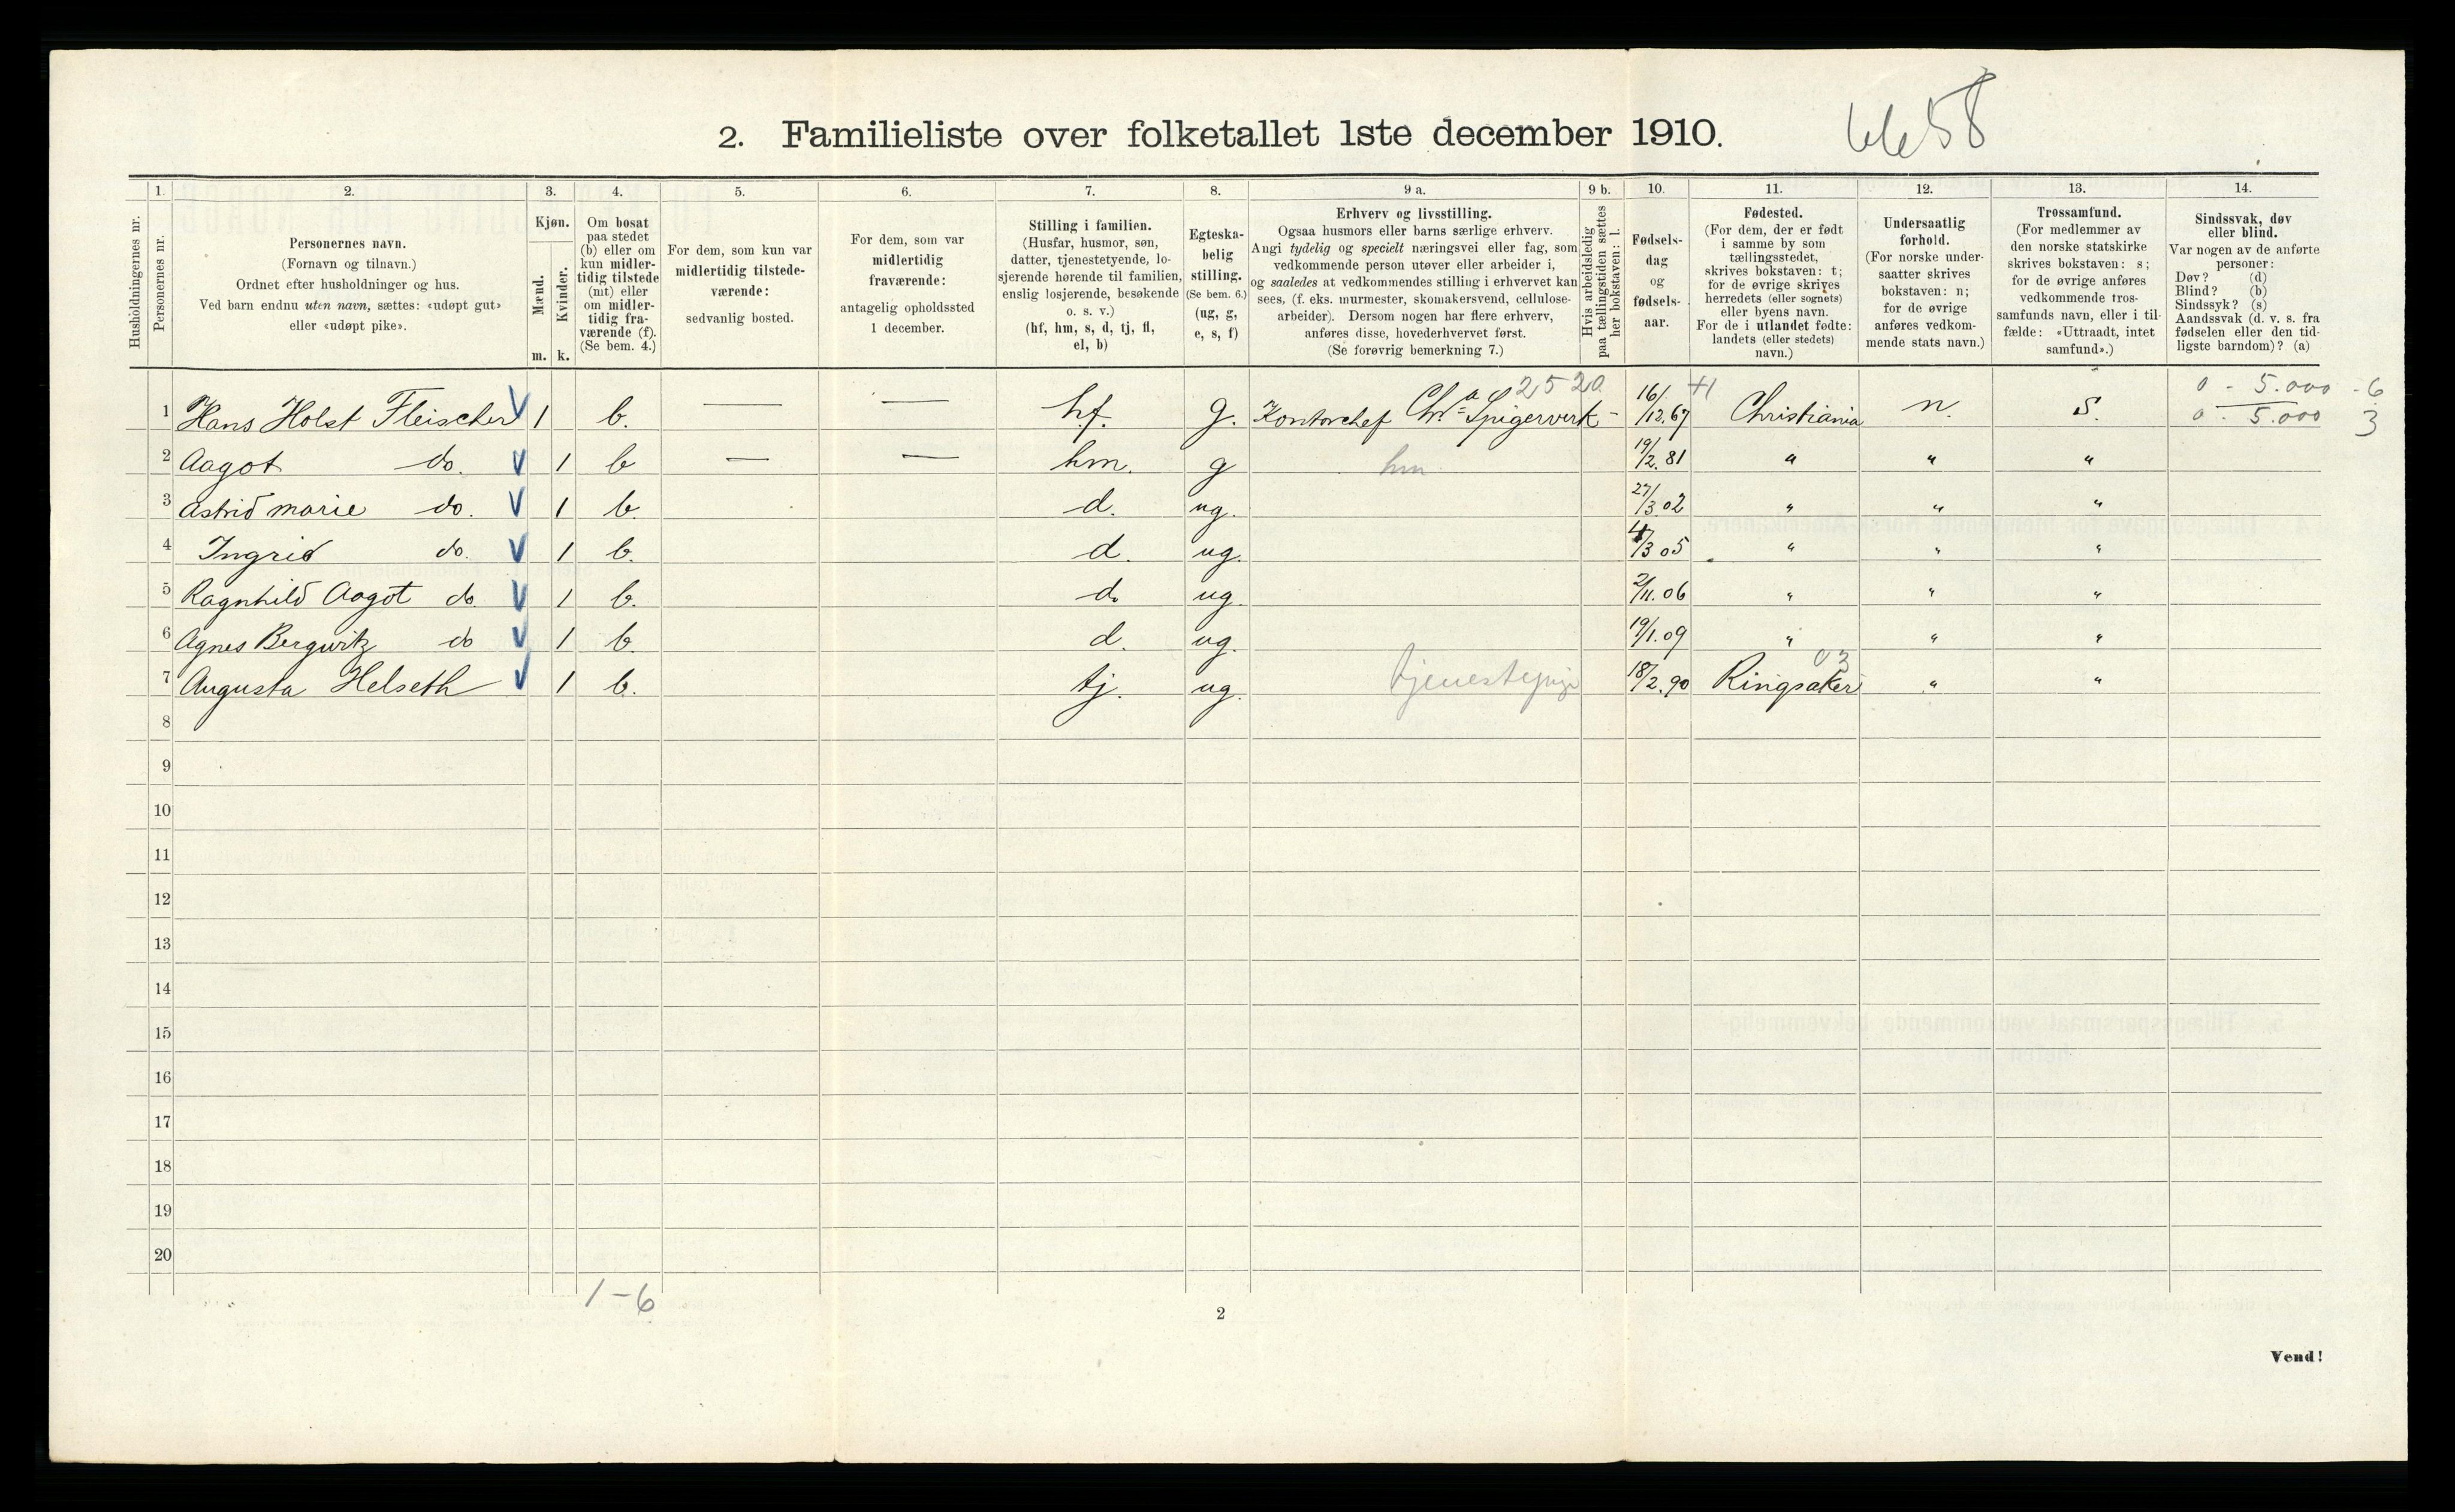 6658
2. Familieliste over folketallet 1ste december 1910.
1. 2. 3. 4. 5. 6. 7. 8. 9 a. 9 b. 10. 11. 12. 13. 14.
Husholdningernes nr.
Personernes nr.
Personernes navn.
(Fornavn og tilnavn.)
Ordnet efter husholdninger og hus.
Ved barn endnu uten navn, sættes: «udøpt gut»
eller «udøpt pike».
Kjøn.
Mænd.
Kvinder.
m. k.
Om bosat
paa stedet
(b) eller om
kun midler-
tidig tilstede
(mt) eller
om midler-
tidig fra-
værende (f).
(Se bem. 4.)
For dem, som kun var
midlertidig tilstede-
værende:
sedvanlig bosted.
For dem, som var
midlertidig
fraværende:
antagelig opholdssted
1 december.
Stilling i familien.
(Husfar, husmor, søn,
datter, tjenestetyende, lo-
sjerende hørende til familien,
enslig losjerende, besøkende
o. s. v.)
(hf, hm, s, d, tj, fl,
el, b)
Egteska-
belig
stilling.
(Se bem. 6.)
(ug, g,
e, s, f)
Erhverv og livsstilling.
Ogsaa husmors eller barns særlige erhverv.
Angi tydelig og specielt næringsvei eller fag, som
vedkommende person utøver eller arbeider i,
og saaledes at vedkommendes stilling i erhvervet kan
sees, (f. eks. murmester, skomakersvend, cellulose-
arbeider). Dersom nogen har flere erhverv,
anføres disse, hovederhvervet først.
(Se forøvrig bemerkning 7.)
Hvis arbeidsledig
paa tællingstiden sættes
her bokstaven: l.
Fødsels-
dag
og
fødsels-
aar.
Fødested.
(For dem, der er født
i samme by som
tællingsstedet,
skrives bokstaven: t;
for de øvrige skrives
herredets (eller sognets)
eller byens navn.
For de i utlandet fødte:
landets (eller stedets)
navn.)
Undersaatlig
forhold.
(For norske under-
saatter skrives
bokstaven: n;
for de øvrige
anføres vedkom-
mende stats navn.)
Trossamfund.
(For medlemmer av
den norske statskirke
skrives bokstaven: s;
for de øvrige anføres
vedkommende tros-
samfunds navn, eller i til-
fælde: «Uttraadt, intet
samfund».)
Sindssvak, døv
eller blind.
Var nogen av de anførte
personer:
Døv? (d)
Blind? (b)
Sindssyk? (s)
Aandssvak (d. v. s. fra
fødselen eller den tid-
ligste barndom)? (a)
2520 +1 0 - 5.000 - 6
1 Hans Holst Fleischer V 1 b. — — hf. g. Kontorchef Chra Spigerverk - 16/12.67 Christiania n. s. 0 - 5.000 3
2 Aagot do. V 1 b — — hm. g hm 19/2.81 " " "
3 Astrid Marie do. V 1 b. d. ug. 27/3.02 " " "
4 Ingrid do. V 1 b. d. ug. 4/3 05 " " "
5 Ragnhild Aagot do. V 1 b. d. ug. 2/11.06 " " "
6 Agnes Bergwitz do V 1 b. d. ug. 19/1.09 " " "
03
7 Augusta Helseth V 1 b. tj. ug. 18/2.90 Ringsaker " "
8
9
10
11
12
13
14
15
16
17
18
19
20
1-6
2
Vend!